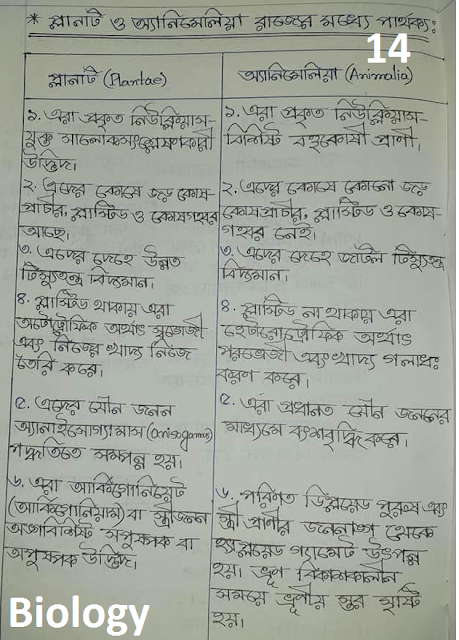 * প্লানটি ও অ্যানিমেলিয়া রাজ্যের মধ্যে পার্থক্য:
14
প্লানটি (Plantae)
১. এরা প্রকৃত নিউক্লিয়াস-
যুক্ত সালোকসংশ্লেষণকারী
উদ্ভিদ।
২. এদের কোষে জড় কোষ-
প্রাচীর, প্লাস্টিড ও কোষগহ্বর
আছে।
৩. এদের দেহে উন্নত
টিস্যুতন্ত্র বিদ্যমান।
৪. প্লাস্টিড থাকায় এরা
অটোট্রফিক অর্থাৎ স্বভোজী
এবং নিজের খাদ্য নিজে
তৈরি করে।
৫. এদের যৌন জনন
অ্যানাইসোগ্যামাস (anisogamous)
পদ্ধতিতে সম্পন্ন হয়।
৬. এরা আর্কিগোনিয়েট
(আর্কিগোনিয়াম) বা স্ত্রীজনন
অঙ্গবিশিষ্ট সপুষ্পক বা
অপুষ্পক উদ্ভিদ।
অ্যানিমেলিয়া (Animalia)
১. এরা প্রকৃত নিউক্লিয়াস-
বিশিষ্ট বহুকোষী প্রাণী।
২. এদের কোষে কোনো জড়
কোষপ্রাচীর, প্লাস্টিড ও কোষ-
গহ্বর নেই।
৩. এদের দেহে জটিল টিস্যুতন্ত্র
বিদ্যমান।
৪. প্লাস্টিড না থাকায় এরা
হেটারোট্রফিক অর্থাৎ
পরভোজী এবং খাদ্য গলাধঃ
করণ করে।
৫. এরা প্রধানত যৌন জননের
মাধ্যমে বংশবৃদ্ধি করে।
৬. পরিণত ডিপ্লয়েড পুরুষ এবং
স্ত্রী প্রাণীর জননাঙ্গ থেকে
হ্যাপ্লয়েড গ্যামেট উৎপন্ন
হয়। ভ্রূণ বিকাশকালীন
সময়ে ভ্রূণীয় স্তর সৃষ্টি
হয়।
Biology